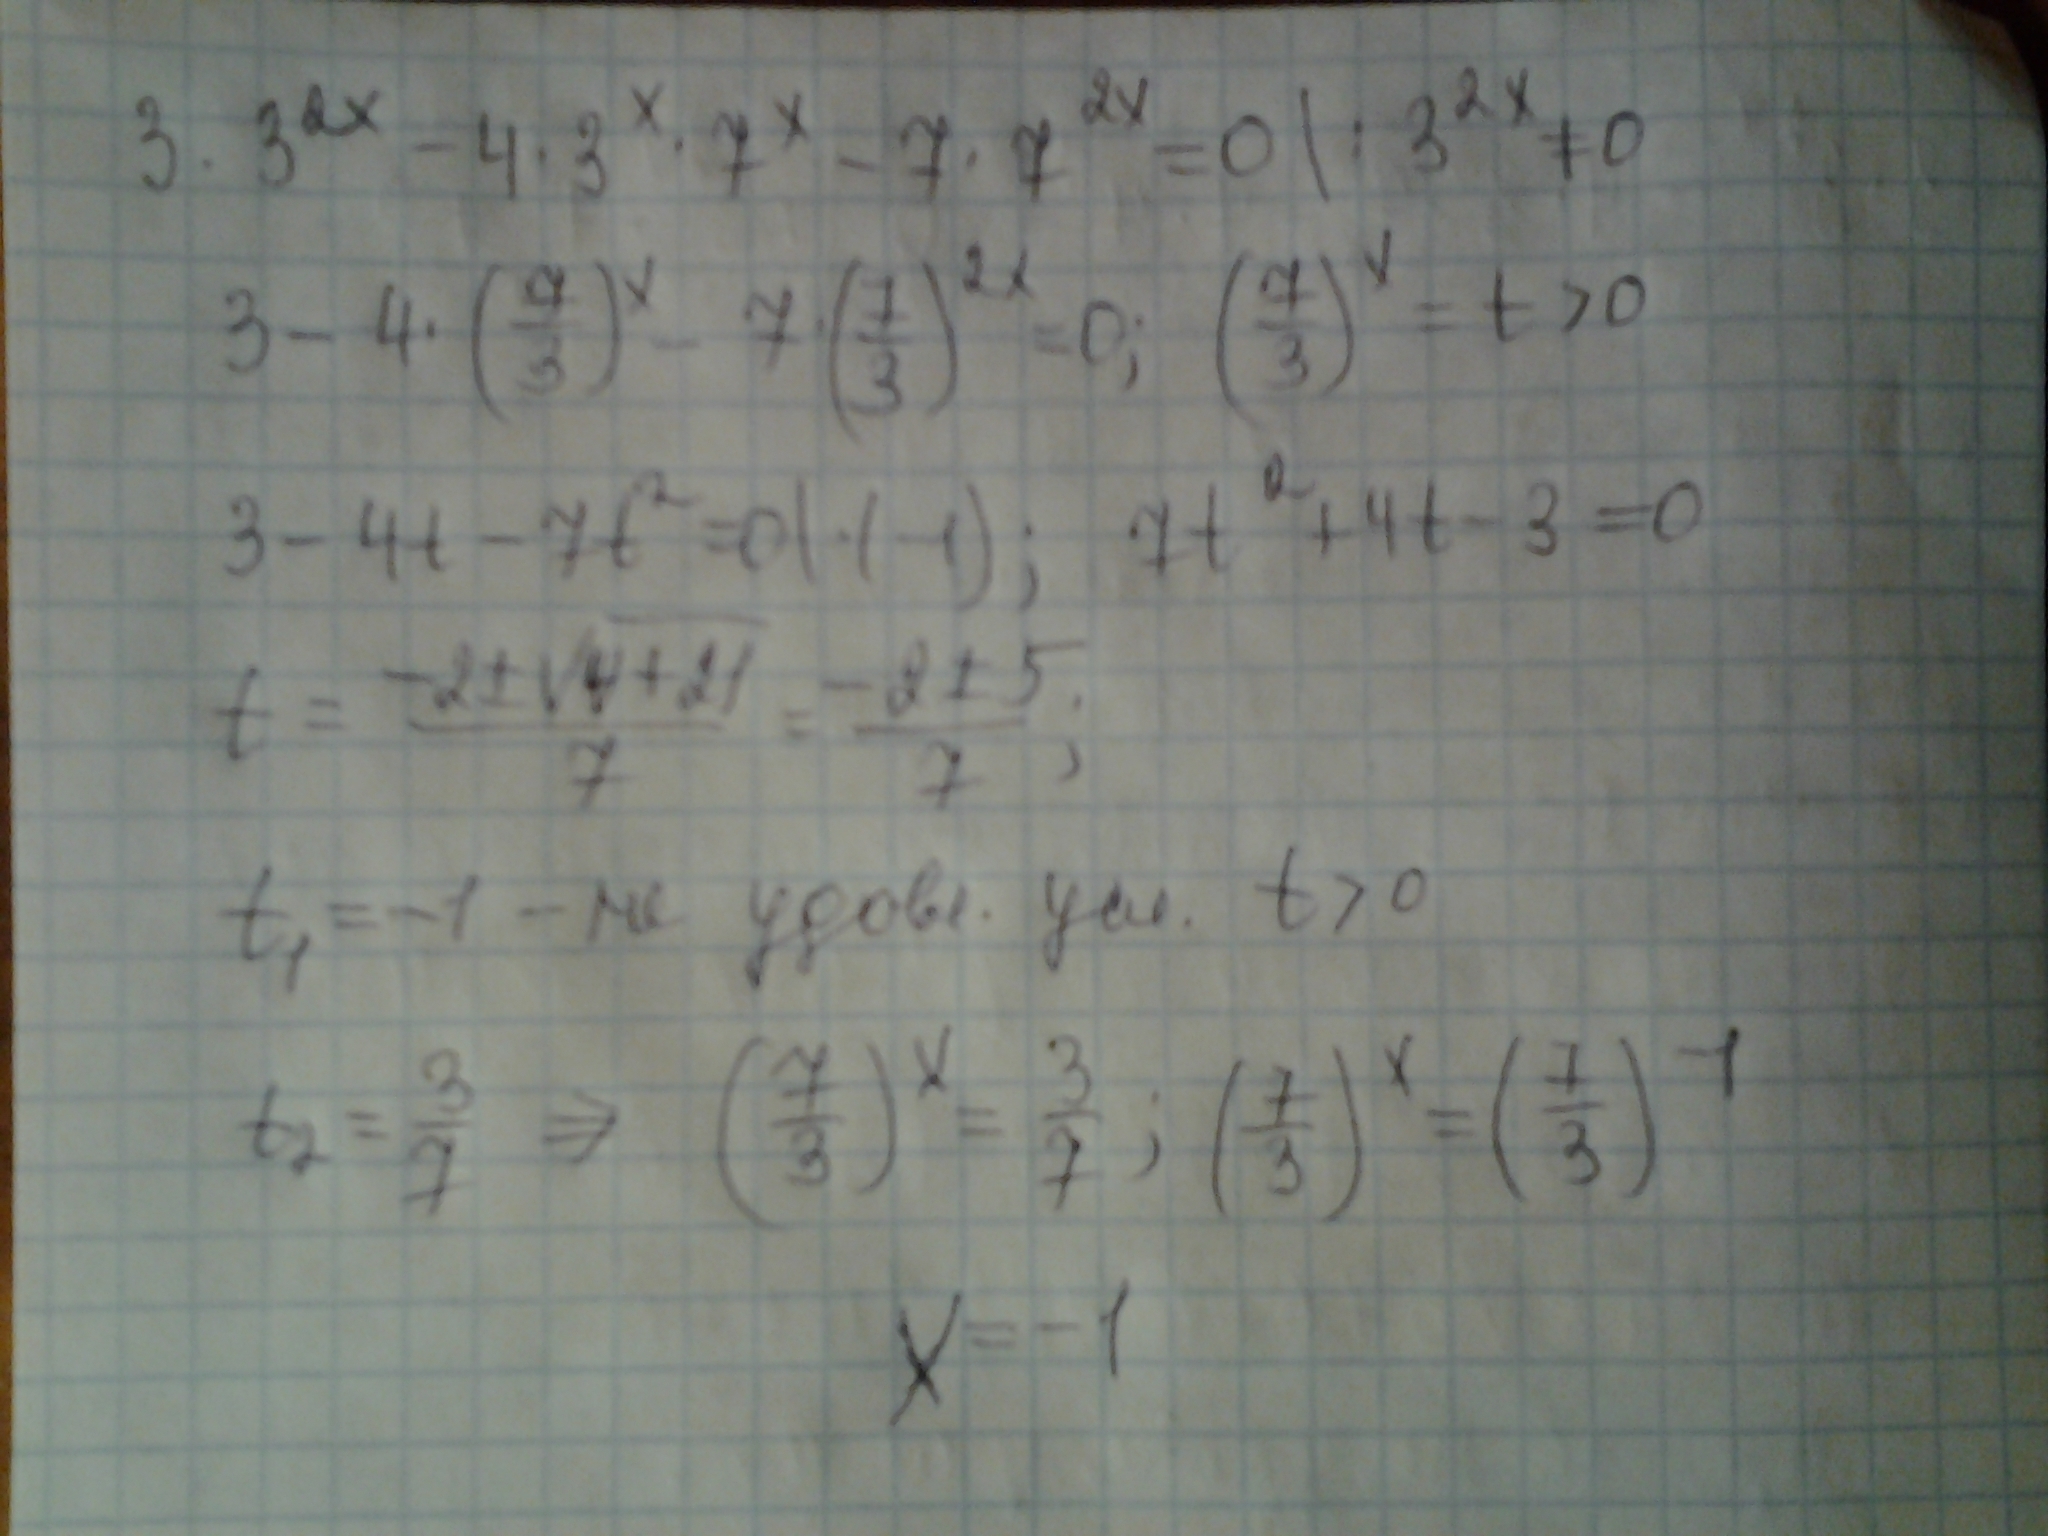 3 · 3^{2x} - 4 · 3^x · 7^x - 7 · 7^{2x} = 0 | : 3^{2x} ≠ 0
3 - 4 · (7/3)^x - 7 · (7/3)^{2x} = 0; (7/3)^x = t > 0
3 - 4t - 7t^2 = 0 | · (-1); 7t^2 + 4t - 3 = 0
t = (-2 ± √(4+21))/7 = (-2 ± 5)/7;
t_1 = -1 - не удовл. усл. t > 0
t_2 = 3/7 ⇒ (7/3)^x = 3/7; (7/3)^x = (7/3)^{-1}
x = -1